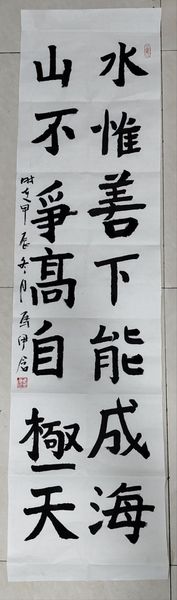 水惟善下能成海
山不爭高自極天
時在甲辰冬月